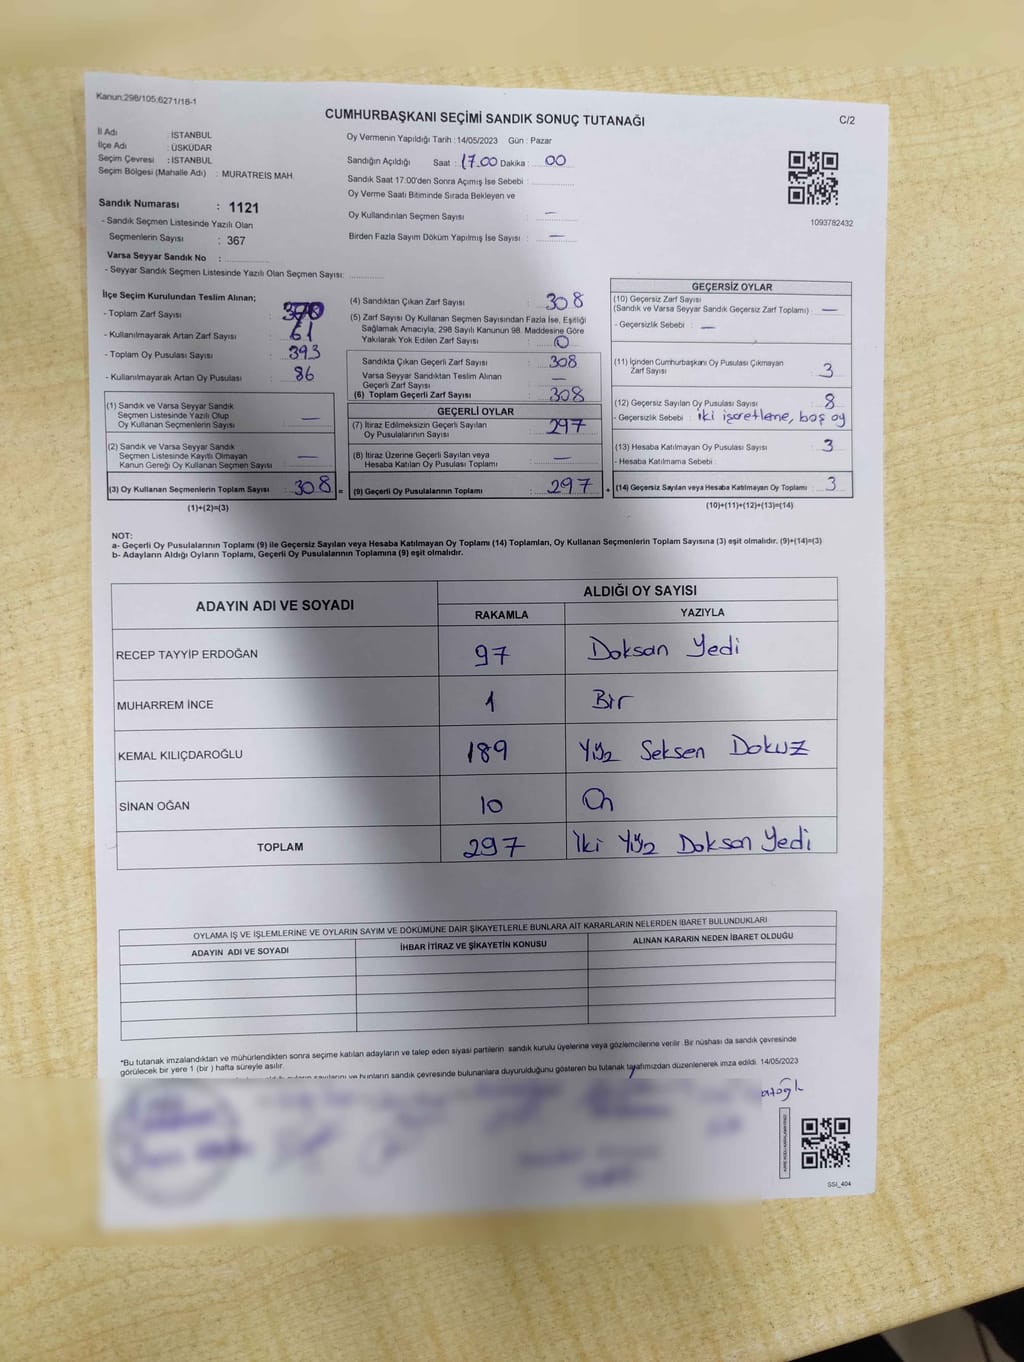 Kanun;298/105,6271/18-1
CUMHURBAŞKANI SEÇİMİ SANDIK SONUÇ TUTANAĞI
C/2
İl Adı : İSTANBUL
İlçe Adı : ÜSKÜDAR
Seçim Çevresi : İSTANBUL
Seçim Bölgesi (Mahalle Adı) : MURATREİS MAH.
Sandık Numarası : 1121
- Sandık Seçmen Listesinde Yazılı Olan
Seçmenlerin Sayısı : 367
Varsa Seyyar Sandık No :
- Seyyar Sandık Seçmen Listesinde Yazılı Olan Seçmen Sayısı:
Oy Vermenin Yapıldığı Tarih :14/05/2023 Gün : Pazar
Sandığın Açıldığı Saat : 17.00 Dakika : 00
Sandık Saat 17:00'den Sonra Açımış İse Sebebi :
Oy Verme Saati Bitiminde Sırada Bekleyen ve
Oy Kullandırılan Seçmen Sayısı : —
Birden Fazla Sayım Döküm Yapılmış İse Sayısı : —
1093782432
İlçe Seçim Kurulundan Teslim Alınan;
- Toplam Zarf Sayısı : 370
- Kullanılmayarak Artan Zarf Sayısı : 61
- Toplam Oy Pusulası Sayısı : 393
- Kullanılmayarak Artan Oy Pusulası : 86
(1) Sandık ve Varsa Seyyar Sandık
Seçmen Listesinde Yazılı Olup
Oy Kullanan Seçmenlerin Sayısı : —
(2) Sandık ve Varsa Seyyar Sandık
Seçmen Listesinde Kayıtlı Olmayan
Kanun Gereği Oy Kullanan Seçmen Sayısı : —
(3) Oy Kullanan Seçmenlerin Toplam Sayısı : 308 =
(1)+(2)=(3)
(4) Sandıktan Çıkan Zarf Sayısı : 308
(5) Zarf Sayısı Oy Kullanan Seçmen Sayısından Fazla İse, Eşitliği
Sağlamak Amacıyla; 298 Sayılı Kanunun 98. Maddesine Göre
Yakılarak Yok Edilen Zarf Sayısı : 0
Sandıkta Çıkan Geçerli Zarf Sayısı : 308
Varsa Seyyar Sandıktan Teslim Alınan
Geçerli Zarf Sayısı : —
(6) Toplam Geçerli Zarf Sayısı : 308
GEÇERLİ OYLAR
(7) İtiraz Edilmeksizin Geçerli Sayılan
Oy Pusulalarının Sayısı : 297
(8) İtiraz Üzerine Geçerli Sayılan veya
Hesaba Katılan Oy Pusulası Toplamı : —
(9) Geçerli Oy Pusulalarının Toplamı : 297 +
GEÇERSİZ OYLAR
(10) Geçersiz Zarf Sayısı
(Sandık ve Varsa Seyyar Sandık Geçersiz Zarf Toplamı) : —
- Geçersizlik Sebebi : —
(11) İçinden Cumhurbaşkanı Oy Pusulası Çıkmayan
Zarf Sayısı : 3
(12) Geçersiz Sayılan Oy Pusulası Sayısı : 8
- Geçersizlik Sebebi : iki işaretleme, boş oy
(13) Hesaba Katılmayan Oy Pusulası Sayısı : 3
- Hesaba Katılmama Sebebi :
(14) Geçersiz Sayılan veya Hesaba Katılmayan Oy Toplamı : 3
(10)+(11)+(12)+(13)=(14)
NOT:
a- Geçerli Oy Pusulalarının Toplamı (9) ile Geçersiz Sayılan veya Hesaba Katılmayan Oy Toplamı (14) Toplamları, Oy Kullanan Seçmenlerin Toplam Sayısına (3) eşit olmalıdır. (9)+(14)=(3)
b- Adayların Aldığı Oyların Toplamı, Geçerli Oy Pusulalarının Toplamına (9) eşit olmalıdır.
ADAYIN ADI VE SOYADI
ALDIĞI OY SAYISI
RAKAMLA YAZIYLA
RECEP TAYYİP ERDOĞAN 97 Doksan Yedi
MUHARREM İNCE 1 Bir
KEMAL KILIÇDAROĞLU 189 Yüz Seksen Dokuz
SİNAN OĞAN 10 On
TOPLAM 297 İki Yüz Doksan Yedi
OYLAMA İŞ VE İŞLEMLERİNE VE OYLARIN SAYIM VE DÖKÜMÜNE DAİR ŞİKAYETLERLE BUNLARA AİT KARARLARIN NELERDEN İBARET BULUNDUKLARI
ADAYIN ADI VE SOYADI İHBAR İTİRAZ VE ŞİKAYETİN KONUSU ALINAN KARARIN NEDEN İBARET OLDUĞU
*Bu tutanak imzalandıktan ve mühürlendikten sonra seçime katılan adayların ve talep eden siyasi partilerin sandık kurulu üyelerine veya gözlemcilerine verilir. Bir nüshası da sandık çevresinde
görülecek bir yere 1 (bir ) hafta süreyle asılır.
sandık çevresinde bulunanlara duyurulduğunu gösteren bu tutanak tarafımızdan düzenlenerek imza edildi. 14/05/2023
SSİ_404